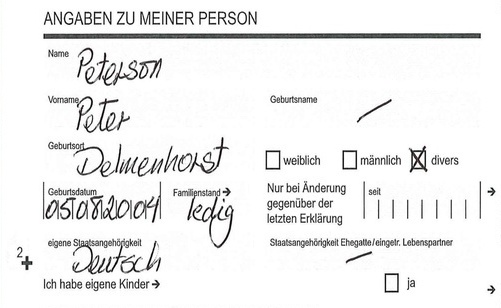 ANGABEN ZU MEINER PERSON
Name
Peterson
Vorname
Peter
Geburtsname
Geburtsort
Delmenhorst
weiblich männlich divers
Geburtsdatum
05082004
Familienstand →
ledig
Nur bei Änderung
gegenüber der
letzten Erklärung
seit →
2
eigene Staatsangehörigkeit
Deutsch
Staatsangehörigkeit Ehegatte/eingetr. Lebenspartner
Ich habe eigene Kinder →
ja →